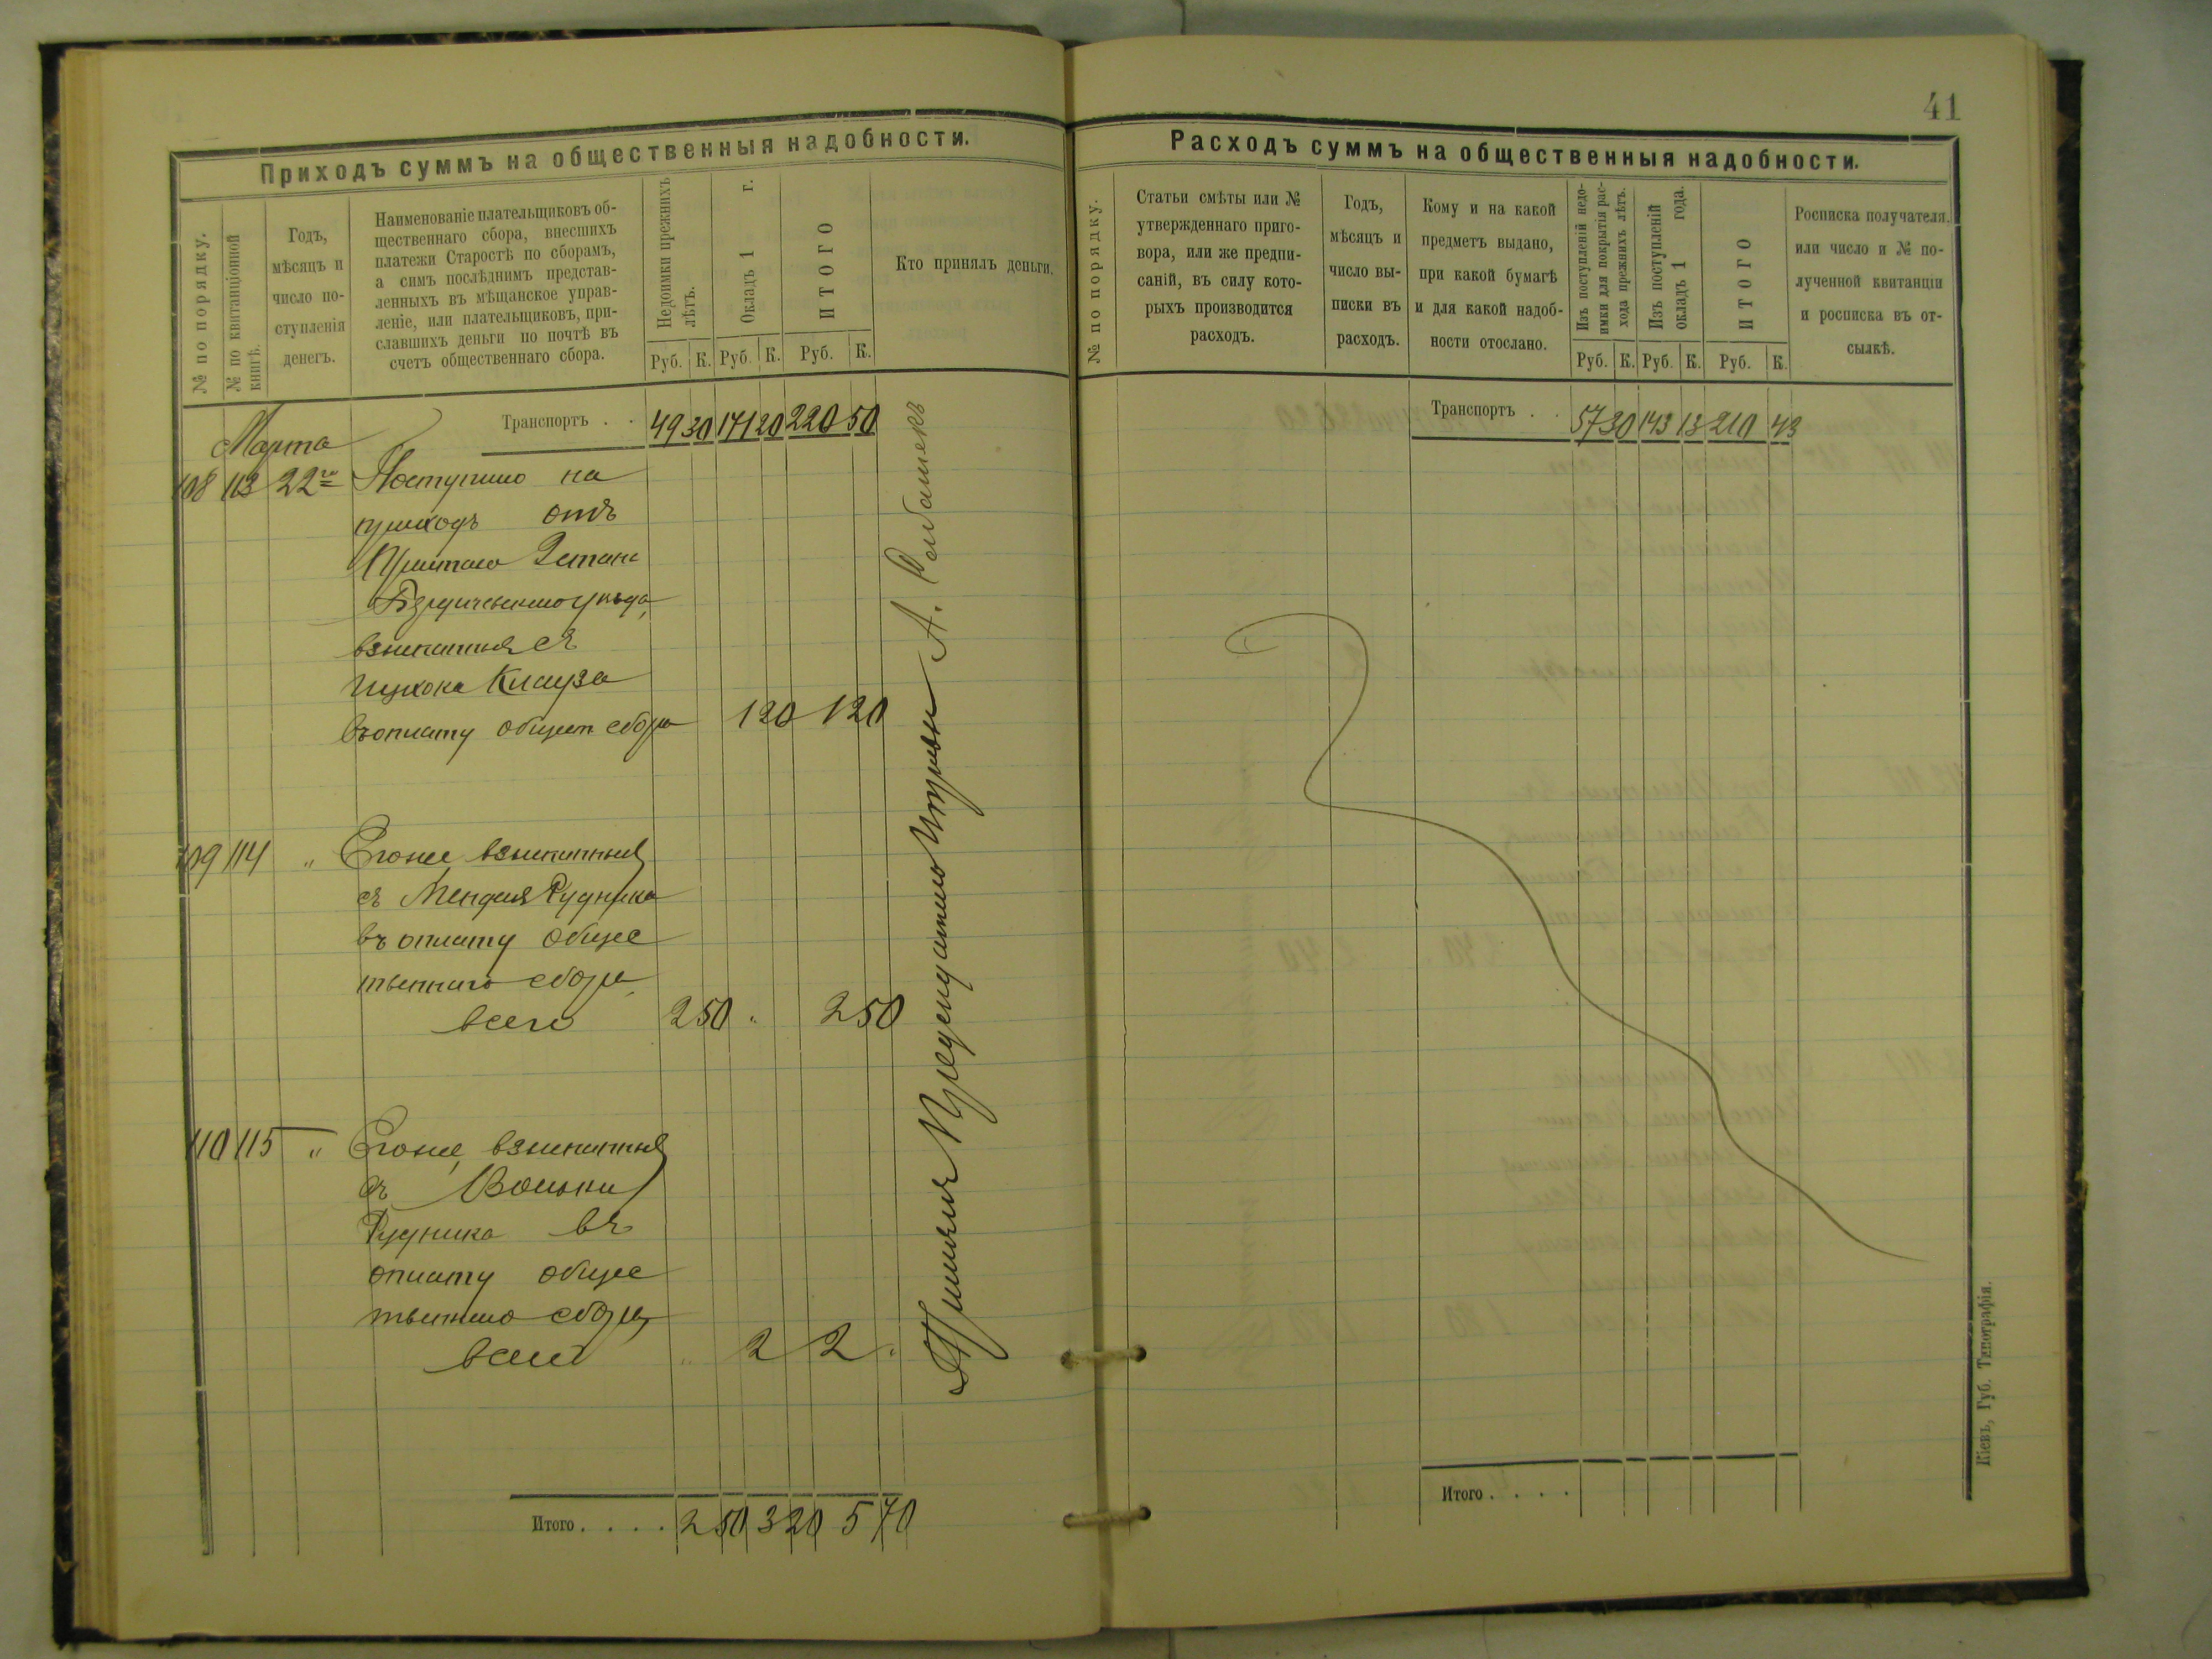 41
Приходъ суммъ на общественныя надобности.
№ по порядку.
№ по квитанціонной
книгѣ.
Годъ,
мѣсяцъ и
число по-
ступленія
денегъ.
Наименованіе плательщиковъ об-
щественнаго сбора, внесшихъ
платежи Старостѣ по сборамъ,
а симъ послѣднимъ представ-
ленныхъ въ мѣщанское управ-
леніе, или плательщиковъ, при-
славшихъ деньги по почтѣ въ
счетъ общественнаго сбора.
Недоимки прежнихъ
лѣтъ.
Окладъ 1 г.
ИТОГО
Кто принялъ деньги.
Руб. К. Руб. К. Руб. К.
Транспортъ . . 49 30 171 20 220 50
Марта
108 113 22го Поступило на
приходъ отъ
Пристава 2 стана
Бердичевскаго уѣзда,
взысканныя съ
Клауза
въ оплату общест. сбора 1 20 1 20
109 114 " Егоже взысканныя
съ Менделя Рудника
въ оплату общес
твеннаго сбора
всего 2 50 " 2 50
110 115 " Егоже, взысканныя
съ Вольки
Рудника въ
оплату общес
твеннаго сбора,
всего " 2 2 "
Итого . . . . 2 50 3 20 5 70
Принялъ А.
Расходъ суммъ на общественныя надобности.
№ по порядку.
Статьи смѣты или №
утвержденнаго приго-
вора, или же предпи-
саній, въ силу кото-
рыхъ производится
расходъ.
Годъ,
мѣсяцъ и
число вы-
писки въ
расходъ.
Кому и на какой
предметъ выдано,
при какой бумагѣ
и для какой надоб-
ности отослано.
Изъ поступленій недо-
имки для покрытія рас-
хода прежнихъ лѣтъ.
Изъ поступленій
окладъ 1 года.
ИТОГО
Росписка получателя,
или число и № по-
лученной квитанціи
и росписка въ от-
сылкѣ.
Руб. К. Руб. К. Руб. К.
Транспортъ . . 57 30 143 13 210 43
Итого . . . .
Кіевъ, Губ. Типографія.